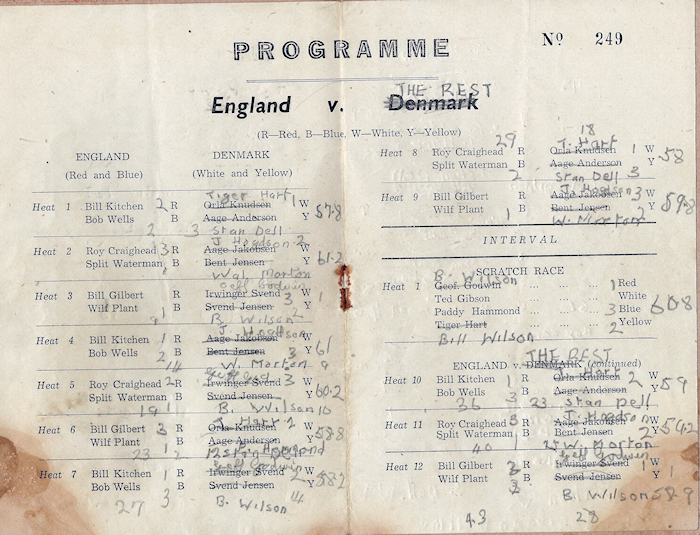 PROGRAMME
Nº 249
THE REST
England v. Denmark
(R—Red, B—Blue, W—White, Y—Yellow)
ENGLAND DENMARK
(Red and Blue) (White and Yellow)
Tiger Hart 1
Heat 1 Bill Kitchen 2 R Orla Knudsen W 57.8
Bob Wells B Aage Anderson Y
2 3 Stan Dell
J. Hogdson 2
Heat 2 Roy Craighead 3 R Aage Jakobsen W 61.2
Split Waterman B Bent Jensen Y
Wal. Morton
Geff Godwin
Heat 3 Bill Gilbert R Irwinger Svend 3 W
Wilf Plant B Svend Jensen Y
B. Wilson 2
Heat 4 Bill Kitchen 1 R Aage Jakobsen W 61
Bob Wells 2 B Bent Jensen 3 Y
14 W. Morton 9
Heat 5 Roy Craighead 2 R Irwinger Svend 3 W 60.2
Split Waterman B Svend Jensen Y
19 1 B. Wilson 10
J. Hart 2
Heat 6 Bill Gilbert 3 R Orla Knudsen W 58.8
Wilf Plant B Aage Anderson Y
23 12
Geff Godwin
Heat 7 Bill Kitchen 1 R Irwinger Svend 2 W 58.2
Bob Wells B Svend Jensen Y
27 3 B. Wilson 14
29 18
J. Hart
Heat 8 Roy Craighead R Orla Knudsen 1 W 58
Split Waterman B Aage Anderson Y
2 Stan Dell 3
J. Hogdson
Heat 9 Bill Gilbert R Aage Jakobsen 3 W 59.8
Wilf Plant 1 B Bent Jensen Y
W. Morton 2
INTERVAL
SCRATCH RACE
B. Wilson
Heat 1 Geof. Godwin ... ... ... 1 Red
Ted Gibson ... ... ... White
Paddy Hammond ... ... ... 3 Blue 60.8
Tiger Hart ... ... ... 2 Yellow
Bill Wilson
THE REST
ENGLAND v. DENMARK (continued)
J. Hart
Heat 10 Bill Kitchen 1 R Orla Knudsen 2 W 59
Bob Wells 3 B Aage Anderson Y
36 23 Stan Dell
J. Hogdson
Heat 11 Roy Craighead 3 R Aage Jakobsen W
Split Waterman B Bent Jensen 2 Y
40 1 W. Morton
Geff Godwin
Heat 12 Bill Gilbert 3 R Irwinger Svend 1 W
Wilf Plant B Svend Jensen Y
B. Wilson 58.9
43 28